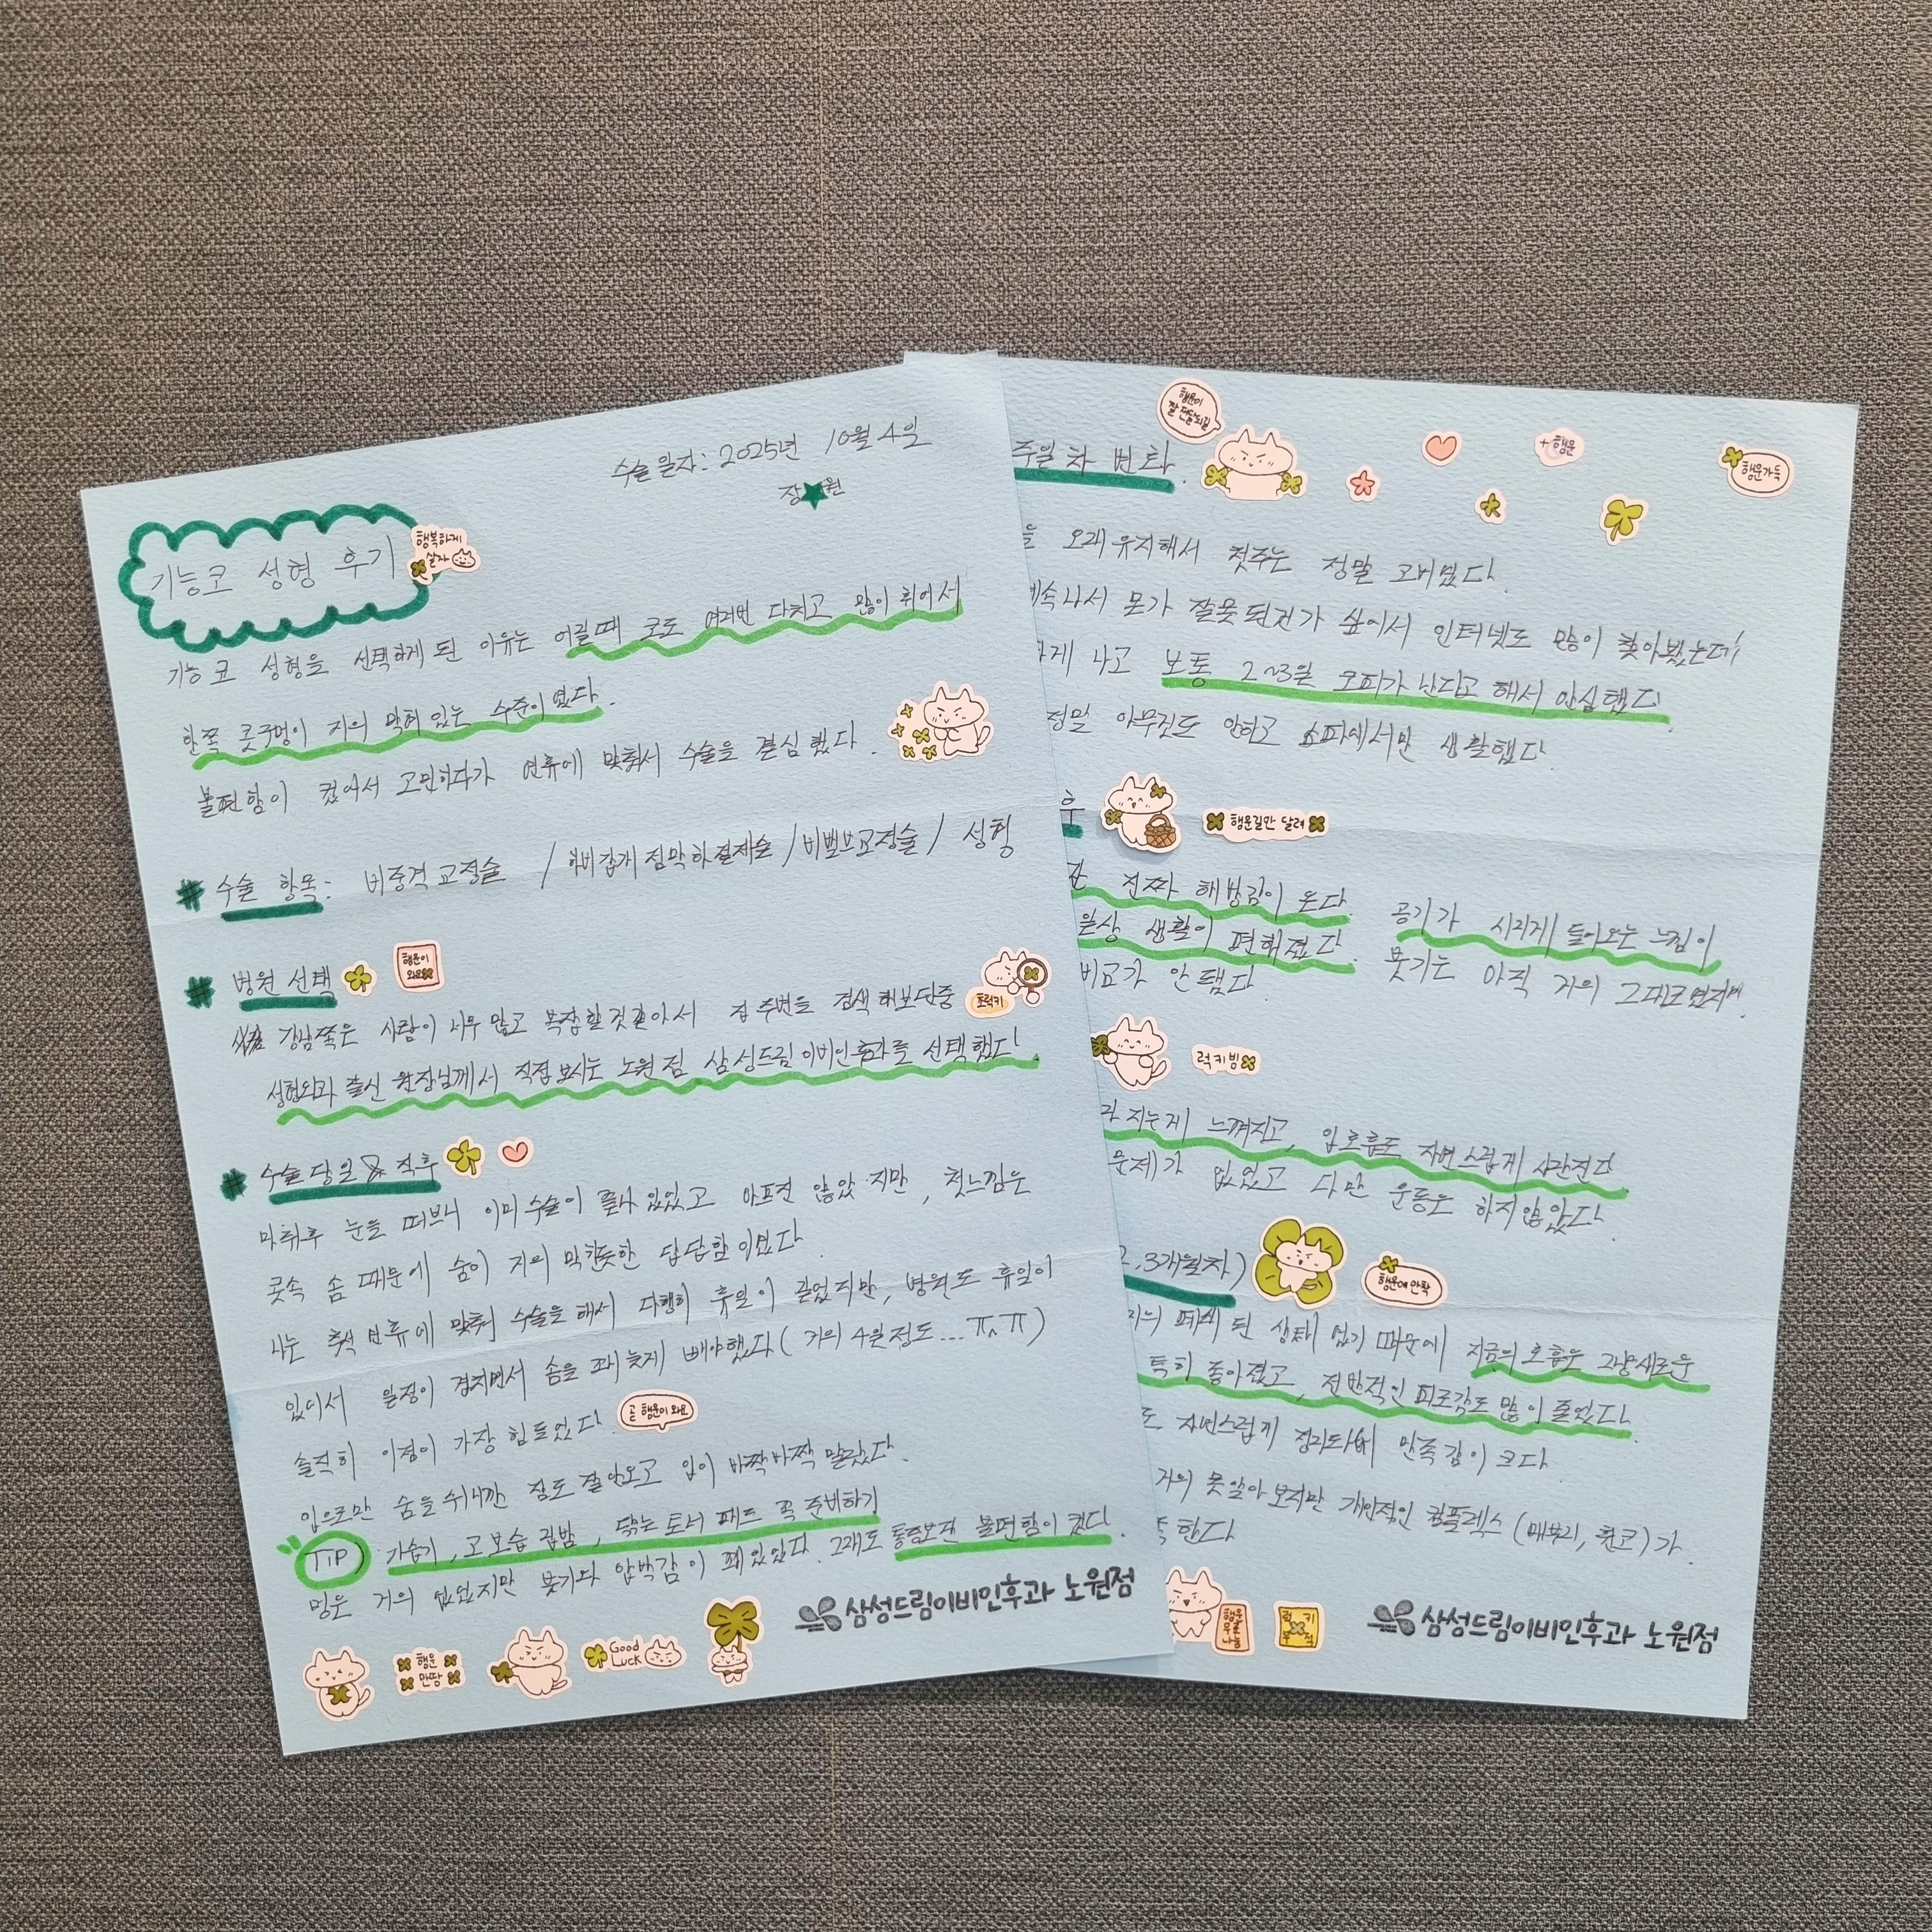 수술 일자: 2025년 10월 4일
장★원
기능코 성형 후기
행복하게 살자
기능 코 성형을 선택하게 된 이유는 어릴때 코도 여러번 다치고 많이 휘어서
한쪽 콧구멍이 거의 막혀 있는 수준이였다.
불편함이 컸어서 고민하다가 연휴에 맞춰서 수술을 결심했다.
# 수술 항목: 비중격 교정술 / 하비갑개 점막하 절제술 / 비밸브교정술 / 성형
# 병원 선택
행운이 와요
강남쪽은 사람이 너무 많고 복잡할것같아서 집 주변을 검색 해보던중
포럭키
성형외과 출신 원장님께서 직접 보시는 노원점 삼성드림이비인후과를 선택했다.
# 수술당일 & 직후
마취후 눈을 떠보니 이미 수술이 끝나 있었고 아프진 않았지만, 첫느낌은
콧속 솜 때문에 숨이 거의 막힌듯한 답답함이였다.
나는 추석 연휴에 맞춰 수술을 해서 다행히 휴일이 길었지만, 병원도 휴일이
있어서 일정이 겹치면서 솜을 꽤 늦게 빼야했다 (거의 4일정도...ㅠㅠ)
솔직히 이점이 가장 힘들었다.
곧 행운이 와요
입으로만 숨을 쉬니깐 잠도 잘안오고 입이 바짝바짝 말랐다.
TIP) 가습기, 코 보습 립밤, 닦는 토너 패드 꼭 준비하기
멍은 거의 없었지만 붓기와 압박감이 꽤 있었다. 그래도 통증보단 불편함이 컸다.
삼성드림이비인후과 노원점
행운 만땅
Good Luck
행운이 잘 전달되길
+행운
행운가득
주일 차 변화.
을 오래 유지해서 첫주는 정말 고비였다.
계속나서 뭔가 잘못된건가 싶어서 인터넷도 많이 찾아봤는데
하게 나고 보통 2~3일 코피가 난다고 해서 안심했다.
정말 아무것도 안하고 소파에서만 생활했다.
후
행운길만 달려
진짜 해방감이 온다. 공기가 시리게 들어오는 느낌이
일상 생활이 편해졌다. 붓기는 아직 거의 그대로였지만
비교가 안됐다.
럭키빔
지는게 느껴지고, 입호흡도 자연스럽게 사라진다.
문제가 없었고 다만 운동은 하지않았다.
2, 3개월차)
행운에 안착
거의 폐쇄 된 상태 였기 때문에 지금의 호흡은 그냥 새로운
특히 좋아졌고, 전반적인 피로감도 많이 줄었다.
도 자연스럽게 정리되어 만족감이 크다.
거의 못알아보지만 개인적인 컴플렉스 (매부리, 휜코)가
족한다
행운 우표 나눔
럭키 부적
삼성드림이비인후과 노원점